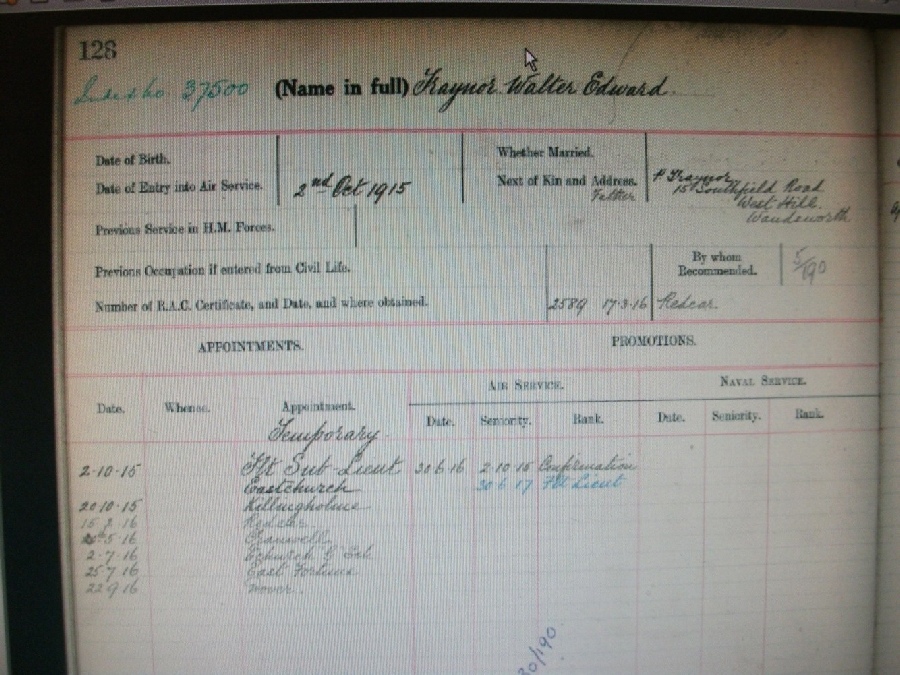 128
Index No. 37500 (Name in full) Traynor. Walter Edward.
Date of Birth.
Whether Married.
Date of Entry into Air Service. 2nd Oct 1915
Next of Kin and Address. Father
P. Traynor
15 Southfield Road
West Hill.
Wandsworth
Previous Service in H.M. Forces.
Previous Occupation if entered from Civil Life.
By whom Recommended.
5/190
Number of R.A.C. Certificate, and Date, and where obtained. 2589 17-3-16 Redcar
APPOINTMENTS. PROMOTIONS.
AIR SERVICE. NAVAL SERVICE.
Date. Whense. Appointment. Date. Seniority. Rank. Date. Seniority. Rank.
Temporary
2-10-15 Flt Sub Lieut. 30 6 16 2-10-15 Confirmation
Eastchurch 30 6 17 Flt Lieut
20 10-15 Killingholme
15 2 16 Redcar
5 16 Cranwell
2-7-16
25 7 16 East Fortune
22 9 16 Dover
30/190